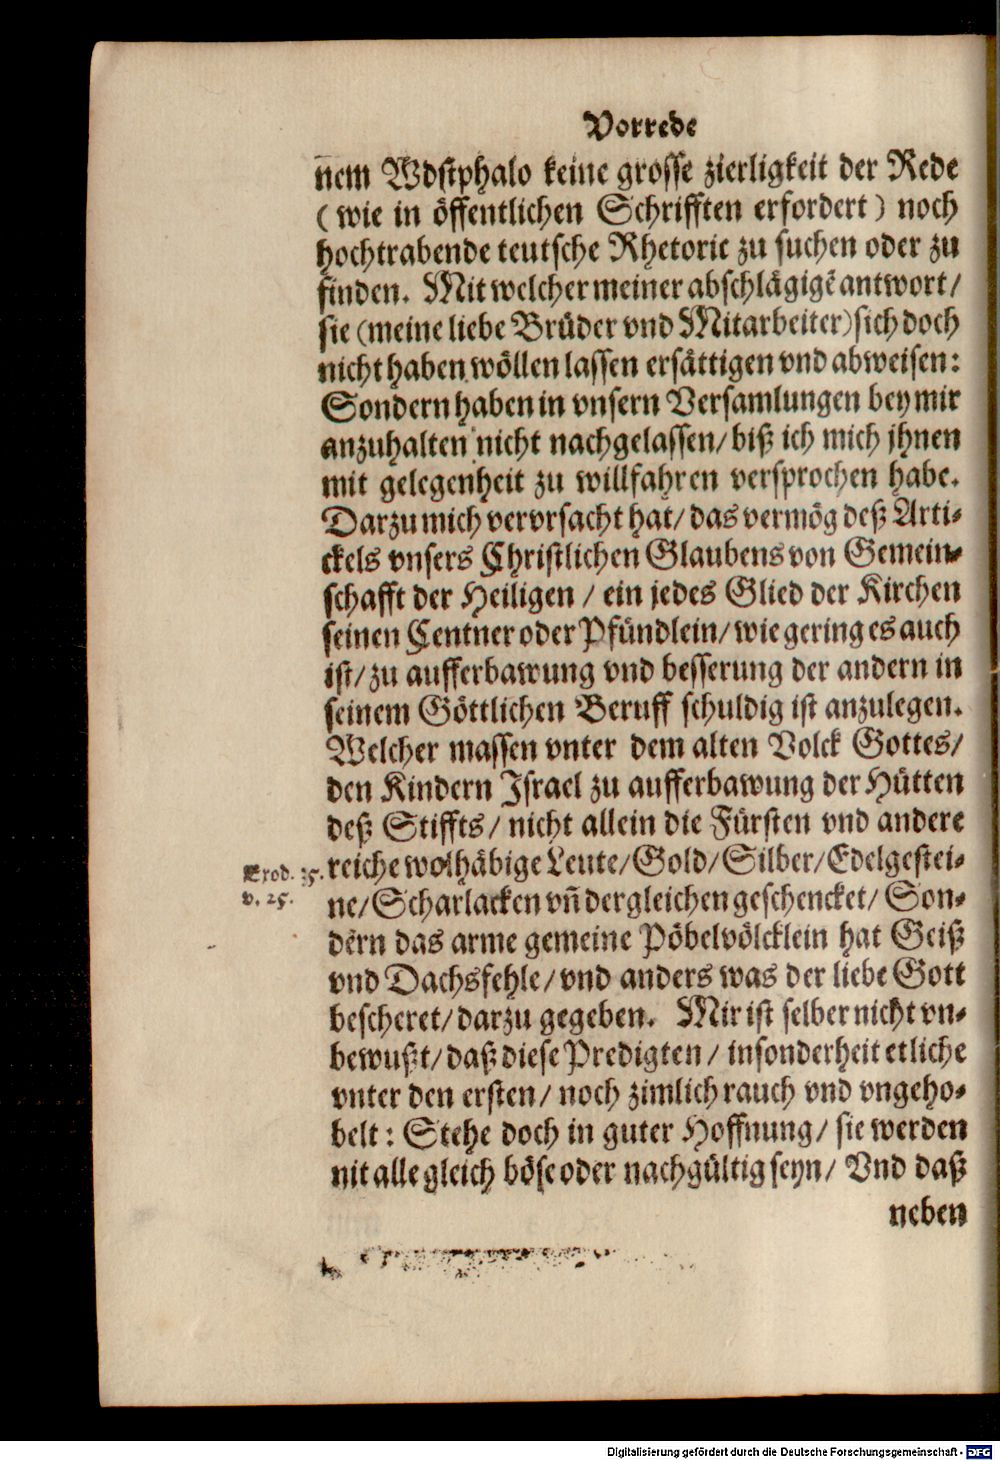 Vorrede
nem Wdstphalo keine grosse zierligkeit der Rede
(wie in öffentlichen Schrifften erfordert) noch
hochtrabende teutsche Rhetoric zu suchen oder zu
finden. Mit welcher meiner abschlägigē antwort/
sie (meine liebe Brüder vnd Mitarbeiter) sich doch
nicht haben wöllen lassen ersättigen vnd abweisen:
Sondern haben in vnsern Versamlungen bey mir
anzuhalten nicht nachgelassen/ biß ich mich jhnen
mit gelegenheit zu willfahren versprochen habe.
Darzu mich vervrsacht hat/ das vermög deß Arti-
ckels vnsers Christlichen Glaubens von Gemein-
schafft der Heiligen / ein jedes Glied der Kirchen
seinen Centner oder Pfündlein/ wie gering es auch
ist/ zu aufferbawung vnd besserung der andern in
seinem Göttlichen Beruff schuldig ist anzulegen.
Welcher massen vnter dem alten Volck Gottes/
den Kindern Israel zu aufferbawung der Hütten
deß Stiffts/ nicht allein die Fürsten vnd andere
Exod. 35.
v. 25.
reiche wolhäbige Leute/ Gold/ Silber/ Edelgestei-
ne/ Scharlacken vñ dergleichen geschencket/ Son-
dern das arme gemeine Pöbelvölcklein hat Geiß
vnd Dachsfehle/ vnd anders was der liebe Gott
bescheret/ darzu gegeben. Mir ist selber nicht vn-
bewußt/ daß diese Predigten / insonderheit etliche
vnter den ersten/ noch zimlich rauch vnd vngeho-
belt: Stehe doch in guter Hoffnung/ sie werden
nit alle gleich böse oder nachgültig seyn/ Vnd daß
neben
Digitalisierung gefördert durch die Deutsche Forschungsgemeinschaft - DFG